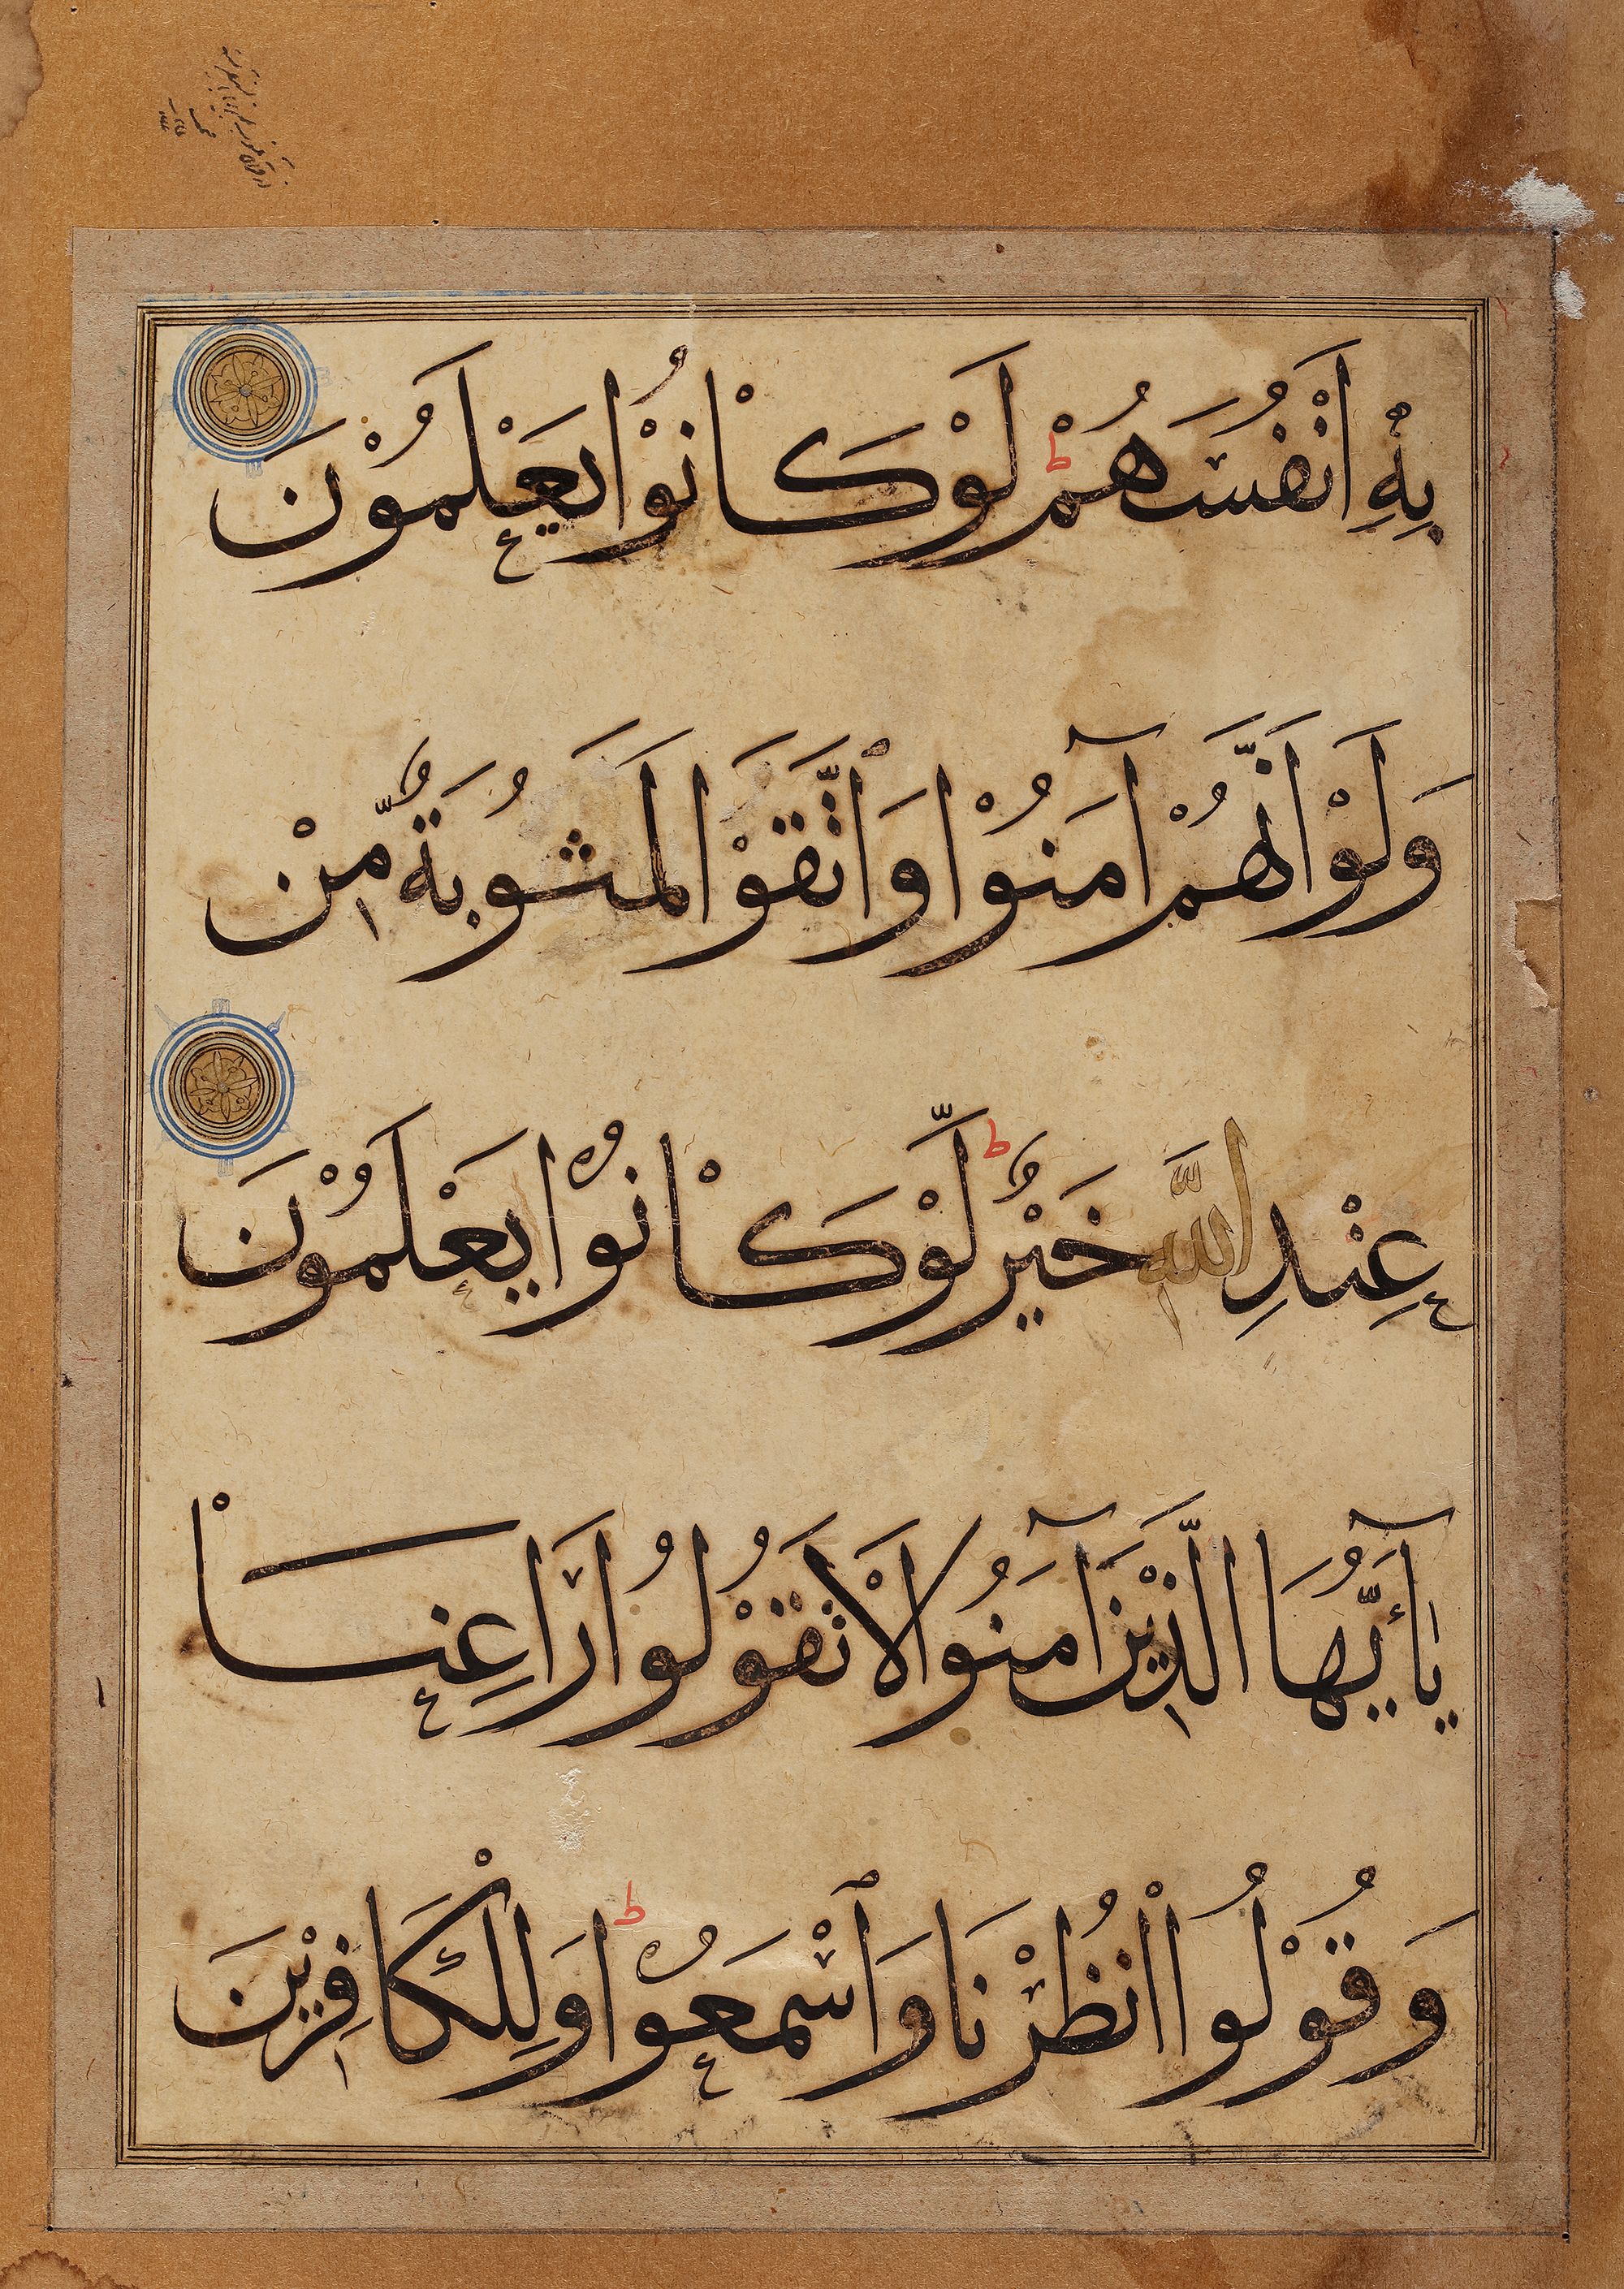 بِهٖ اَنْفُسَهُمْ ط لَوْ كَانُوْا يَعْلَمُوْنَ
وَلَوْ اَنَّهُمْ آمَنُوْا وَاتَّقَوْا لَمَثُوبَةٌ مِّنْ
عِنْدِ اللّٰهِ خَيْرٌ ط لَّوْ كَانُوْا يَعْلَمُوْنَ
يَآ اَيُّهَا الَّذِيْنَ آمَنُوا لَا تَقُوْلُوا رَاعِنَا
وَقُوْلُوا انْظُرْنَا وَاسْمَعُوا ط وَلِلْكَافِرِيْنَ